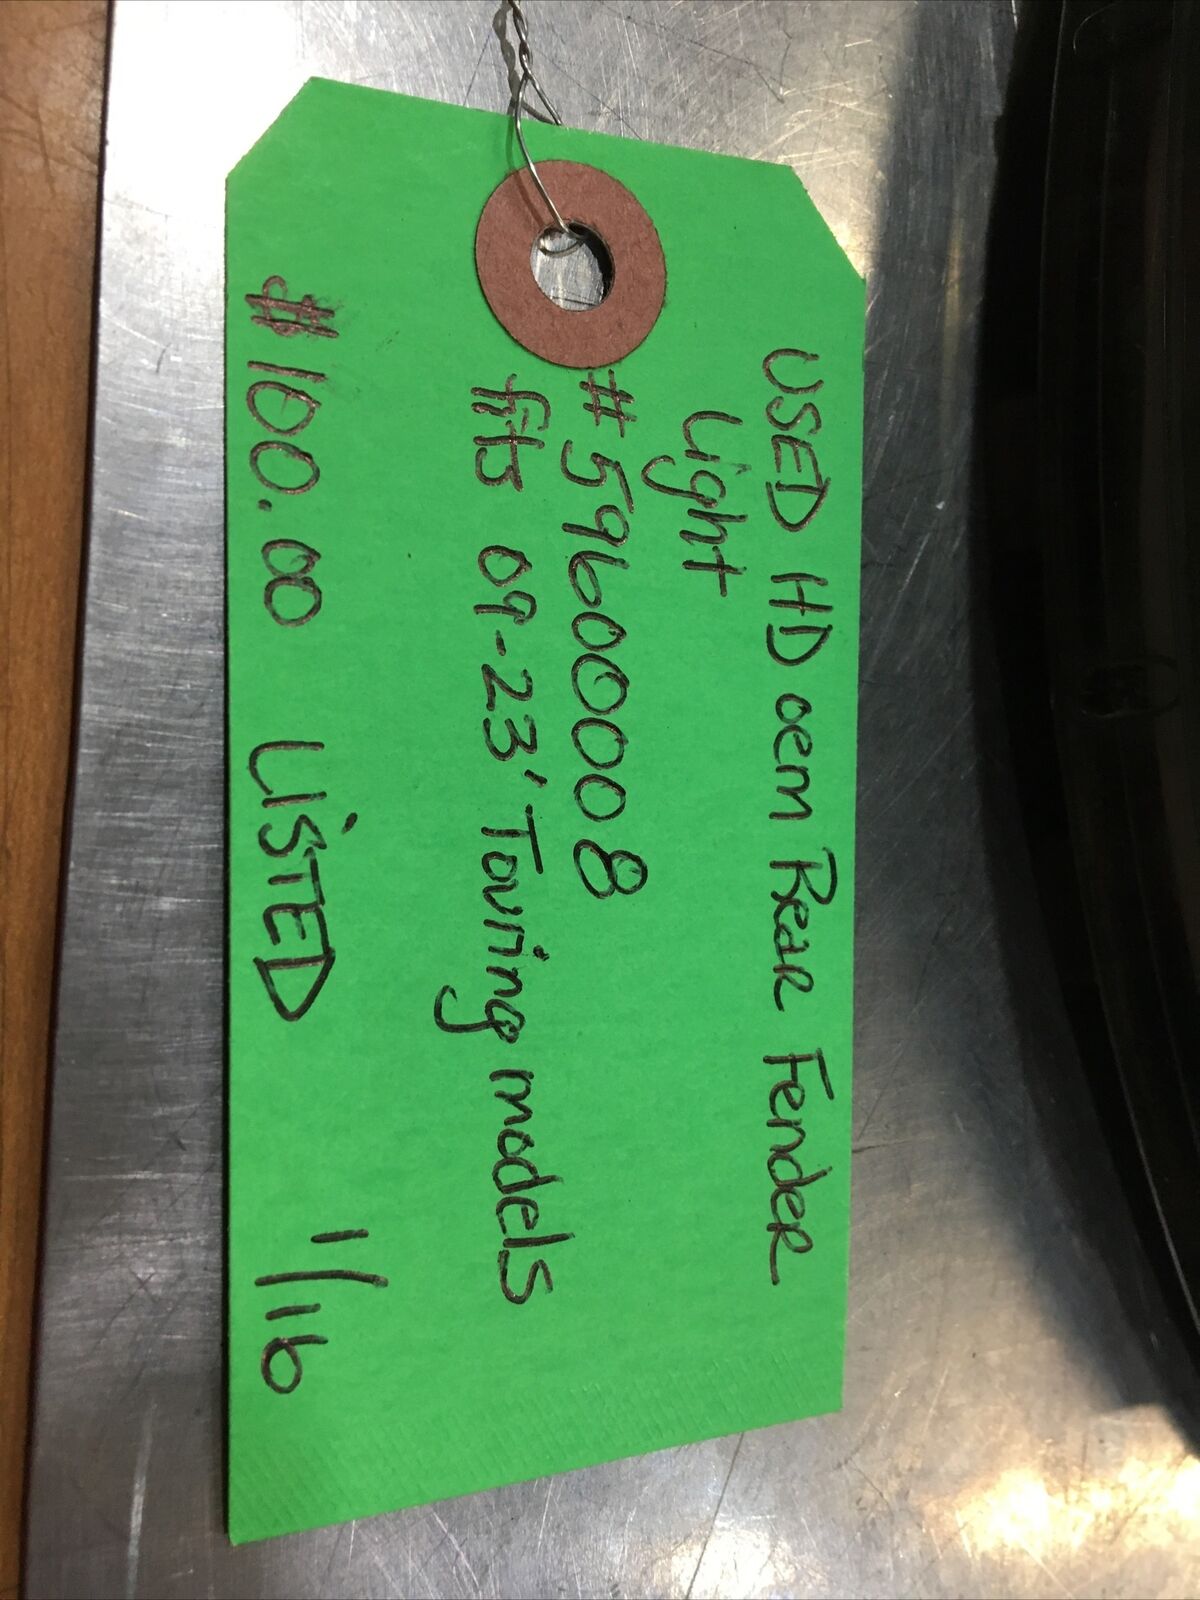 USED HD oem Rear Fender
Light
# 59600008
fits 09-23' Touring models
#100.00 LISTED 1/16